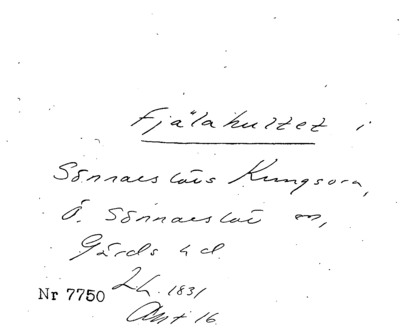 Fjälahultet i
Sönnarslövs Kungsora,
Ö. Sönnarslöv sn,
Gärds hd.
Lh. 1831
Nr 7750
Akt 16